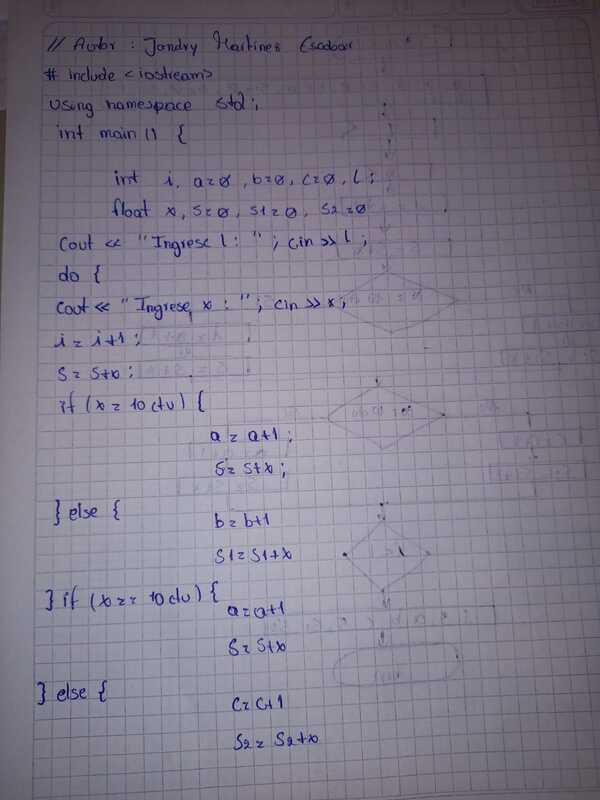 // Autor : Jandry Martines Escobar
# include <iostream>
using namespace std;
int main () {
int i, a=0, b=0, c=0, l;
float x, s=0, s1=0, s2=0
Cout << "Ingrese l : " ; cin >> l ;
do {
Cout << " Ingrese x : " ; cin >> x ;
i = i+1 ;
s = s+x ;
if (x = 10 ctv) {
a = a+1 ;
s = s+x ;
} else {
b = b+1
s1 = s1+x
} if (x == 10 ctv) {
a = a+1
s = s+x
} else {
c = c+1
s2 = s2+x